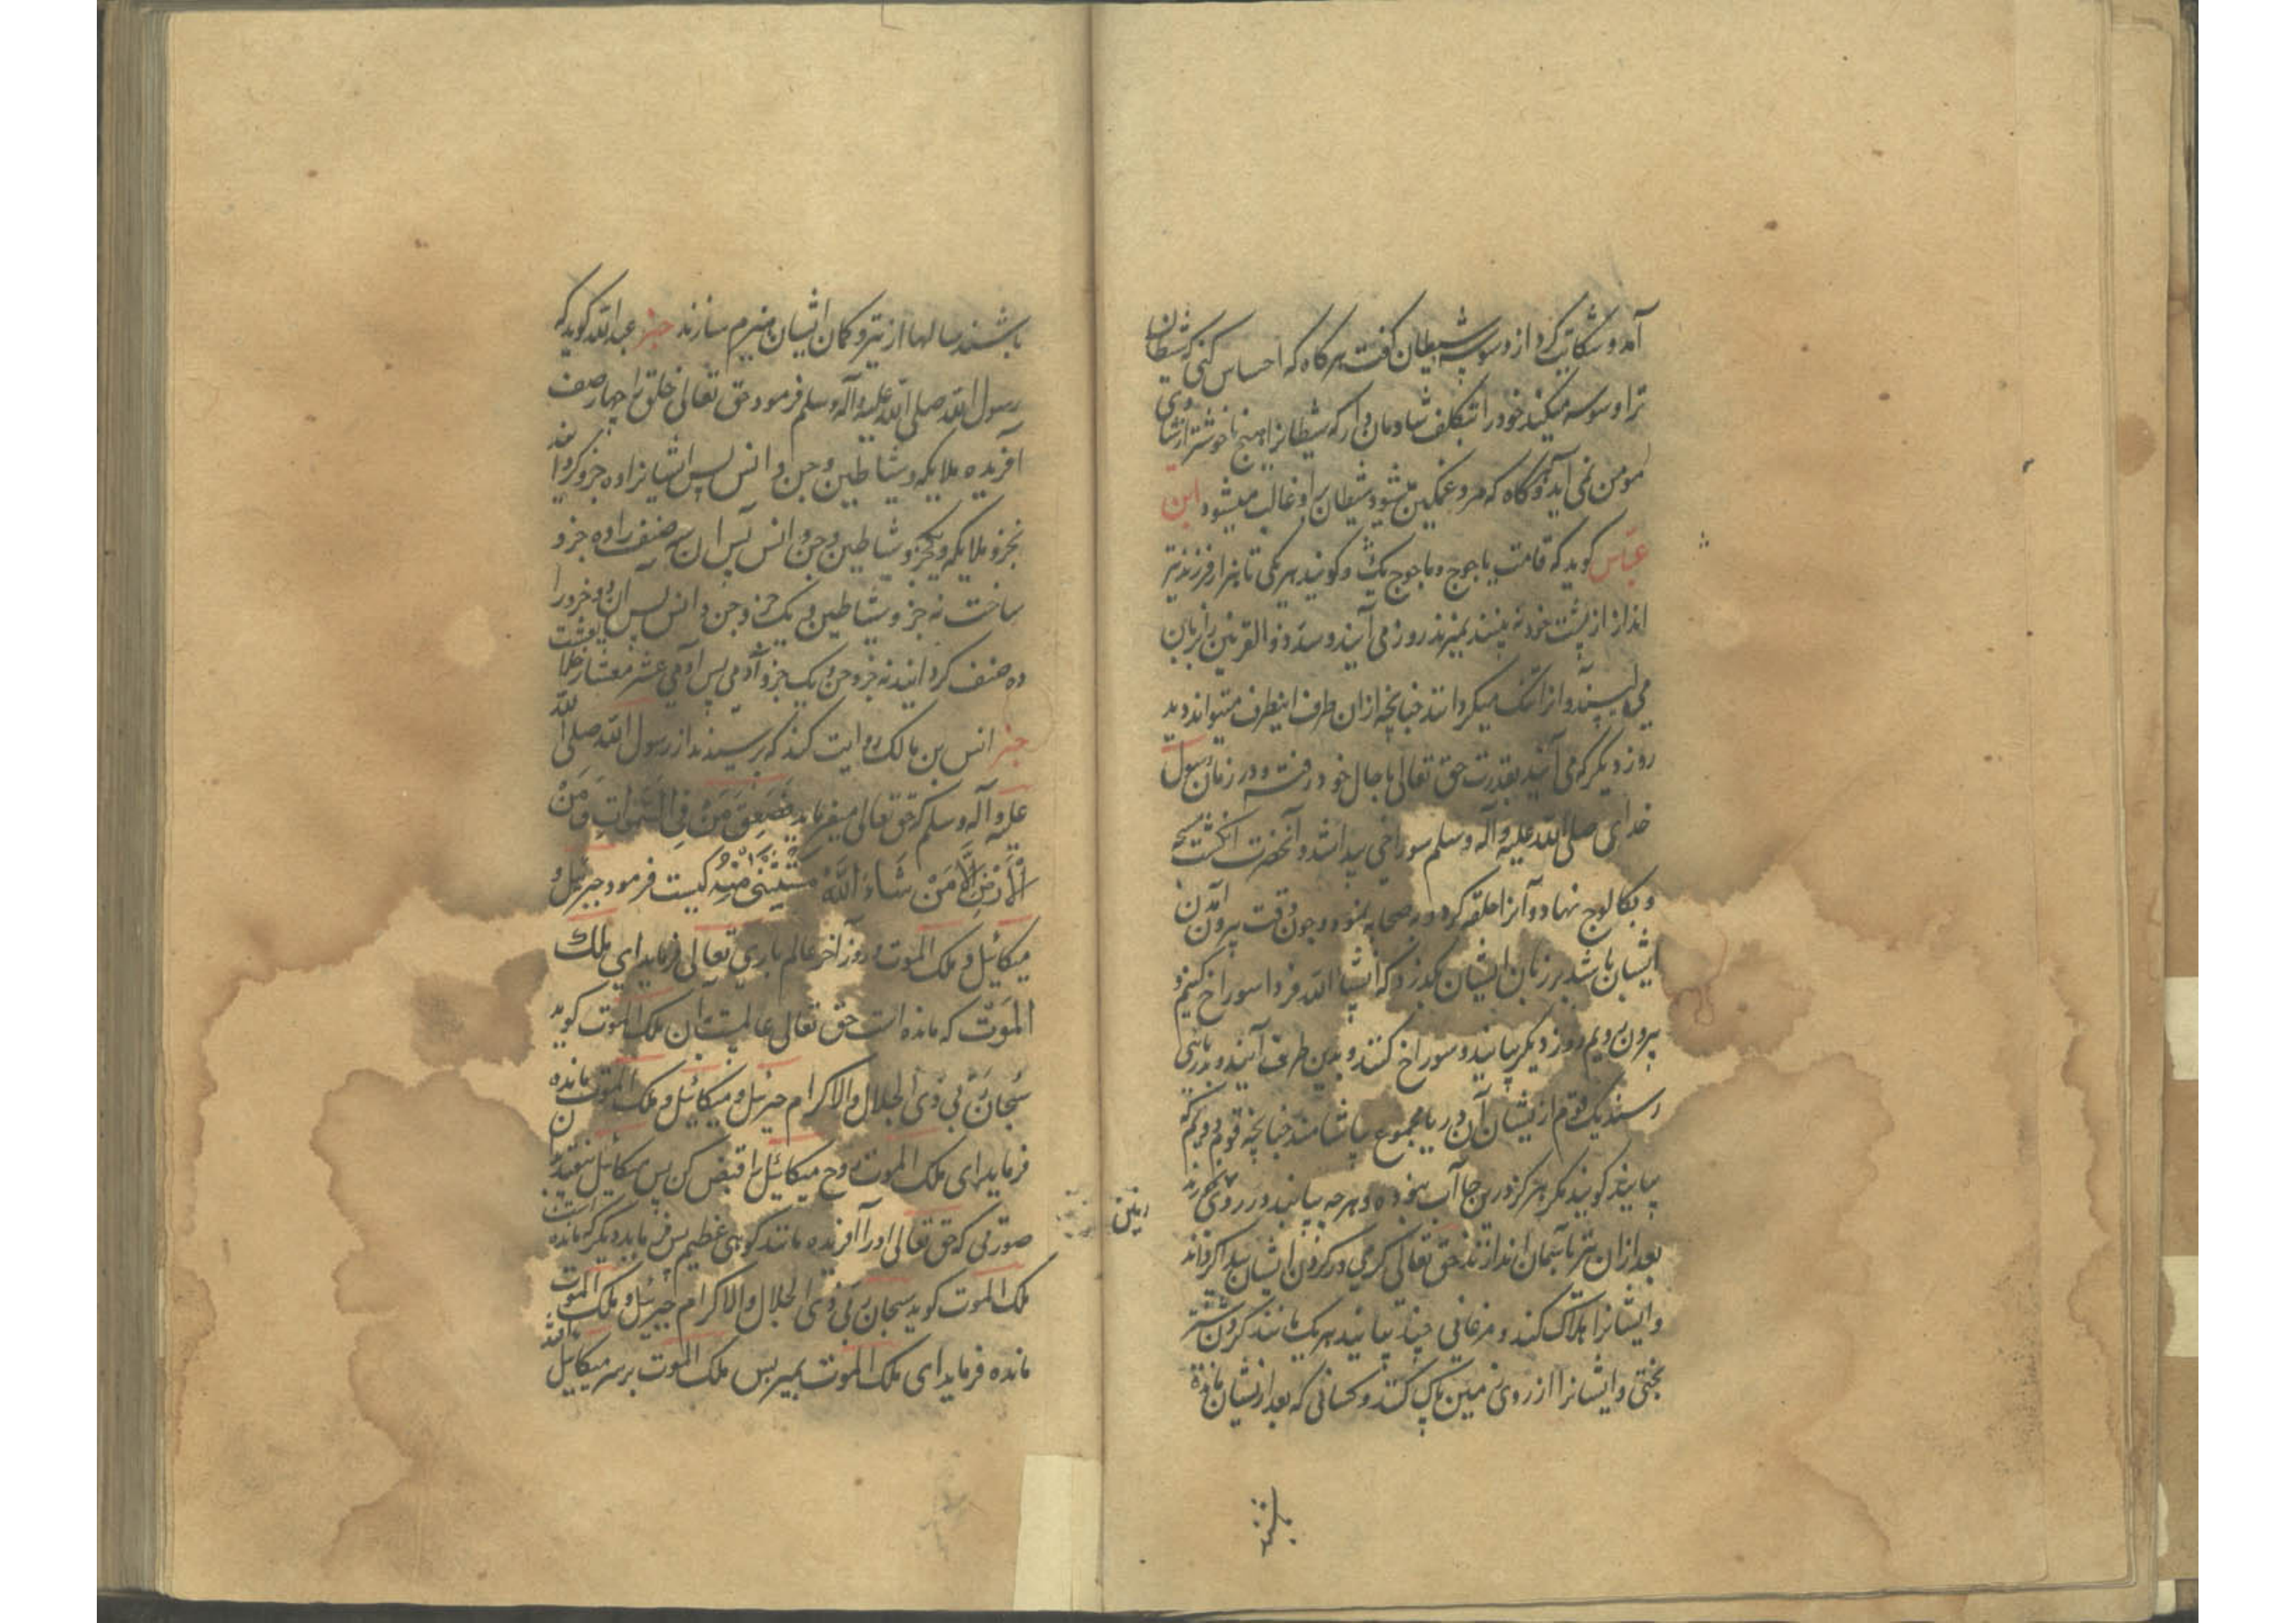 آمد و شکایت کرد از وسوسه شیطان گفت هرگاه که احساس کنی که شیطان
ترا وسوسه میکند خود را بتکلف شادمان دار که شیطانرا هیچ ناخوشتر از شادی
مومن نمی آید و هرگاه که مرد غمگین شود شیطان بر او غالب میشود ابن
عباس گوید که قامت یاجوج و ماجوج یک و گویند هر یکی تا هزار فرزند تیر
انداز از پشت خود نه بینند نمیرند روز می آیند و سد ذوالقرنین را بزبان
می لیسند و آنرا تنک میکردانند چنانچه از ان طرف اینطرف میتواند دید
روز دیگر که می آیند بقدرت حق تعالی باحال خود رفته و در زمان رسول
خدای صلی الله علیه و آله و سلم سوراخی پیدا شد و آنحضرت انگشت
نهاد و آنرا حلقه کرد و بصحابه نمود و چون وقت بیرون آمدن
ایشان باشد بر زبان ایشان گذرد که انشاالله فردا سوراخ کنیم و
بیرون رویم روز دیگر بیایند و سوراخ کنند و بدین طرف آیند و بدریائی
رسند یک قوم ازیشان آن دریا مجموع بیاشامند چنانچه قوم دویم که
بیایند گویند مگر هرگز درین جا آب نبوده و هر چه بیابند در روی زمین بخورند
بعد از ان تیر بآسمان اندازند حق تعالی کرمی در گردن ایشان پیدا گرداند
و ایشانرا هلاک کند و مرغانی چند بیایند هر یک مانند گردن شتر
بختی و ایشانرا از روی زمین پاک کنند و کسانی که بعد ازیشان مانده
باشند
باشند سالها از تیر و کمان ایشان هیزم سازند خبر عبدالله گوید که
رسول الله صلی الله علیه و آله و سلم فرمود حق تعالی خلق را چهار صنف
آفریده ملایکه و شیاطین و جن و انس پس ایشانرا ده جزو گردانید
نه جزو ملایکه و یکجزو شیاطین و جن و انس پس آن سه صنف را ده جزو
ساخت نه جزو شیاطین و یک جزو جن و انس پس آن دو جزو را
ده صنف گردانید نه جزو جن و یک جزو آدمی پس آدمی عشر معشار
خبر انس بن مالک روایت کند که پرسیدند از رسول الله صلی الله
علیه و آله و سلم که حق تعالی میفرماید فَصَعِقَ مَنْ فِی السَّمٰواتِ وَ مَنْ
فِی الْاَرْضِ اِلَّا مَنْ شَاءَ اللّٰهُ مستثنی منه کیست فرمود جبرئیل و
میکائیل و ملک الموت روز آخر عالم باری تعالی فرماید ای ملک
الموت که مانده است حق تعالی عالمست بآن ملک الموت گوید
سبحان ربی ذی الجلال والاکرام جبرئیل و میکائیل و ملک الموت مانده
فرماید ای ملک الموت روح میکائیل را قبض کن پس میکائیل بیفتد بآن
صورتی که حق تعالی او را آفریده مانند کوهی عظیم پس فرماید دیگر که مانده است
ملک الموت گوید سبحان ربی ذی الجلال والاکرام جبرئیل و ملک الموت
مانده فرماید ای ملک الموت بمیر پس ملک الموت بر سر میکائیل افتد